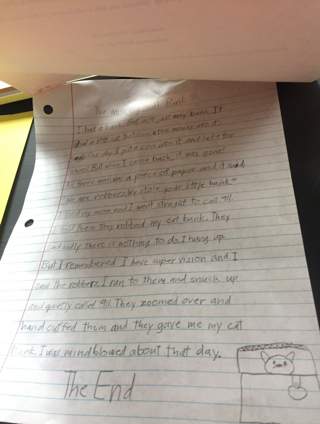 The Bank
I had a bank. But not just any bank. It
had a
one day I put a coin into it and left for
school. But when I came back, it was gone!
All there was was a piece of paper and it said
"We are robbers. We stole your little bank."
I told my mom and I went straight to call 911.
I told them they robbed my cat bank. They
said sadly there is nothing to do. I hung up.
But I remembered I have super vision and I
saw the robbers. I ran to them and snuck up
and quietly called 911. They zoomed over and
hand cuffed them and they gave me my cat
bank. I was mindblowed about that day.
The End